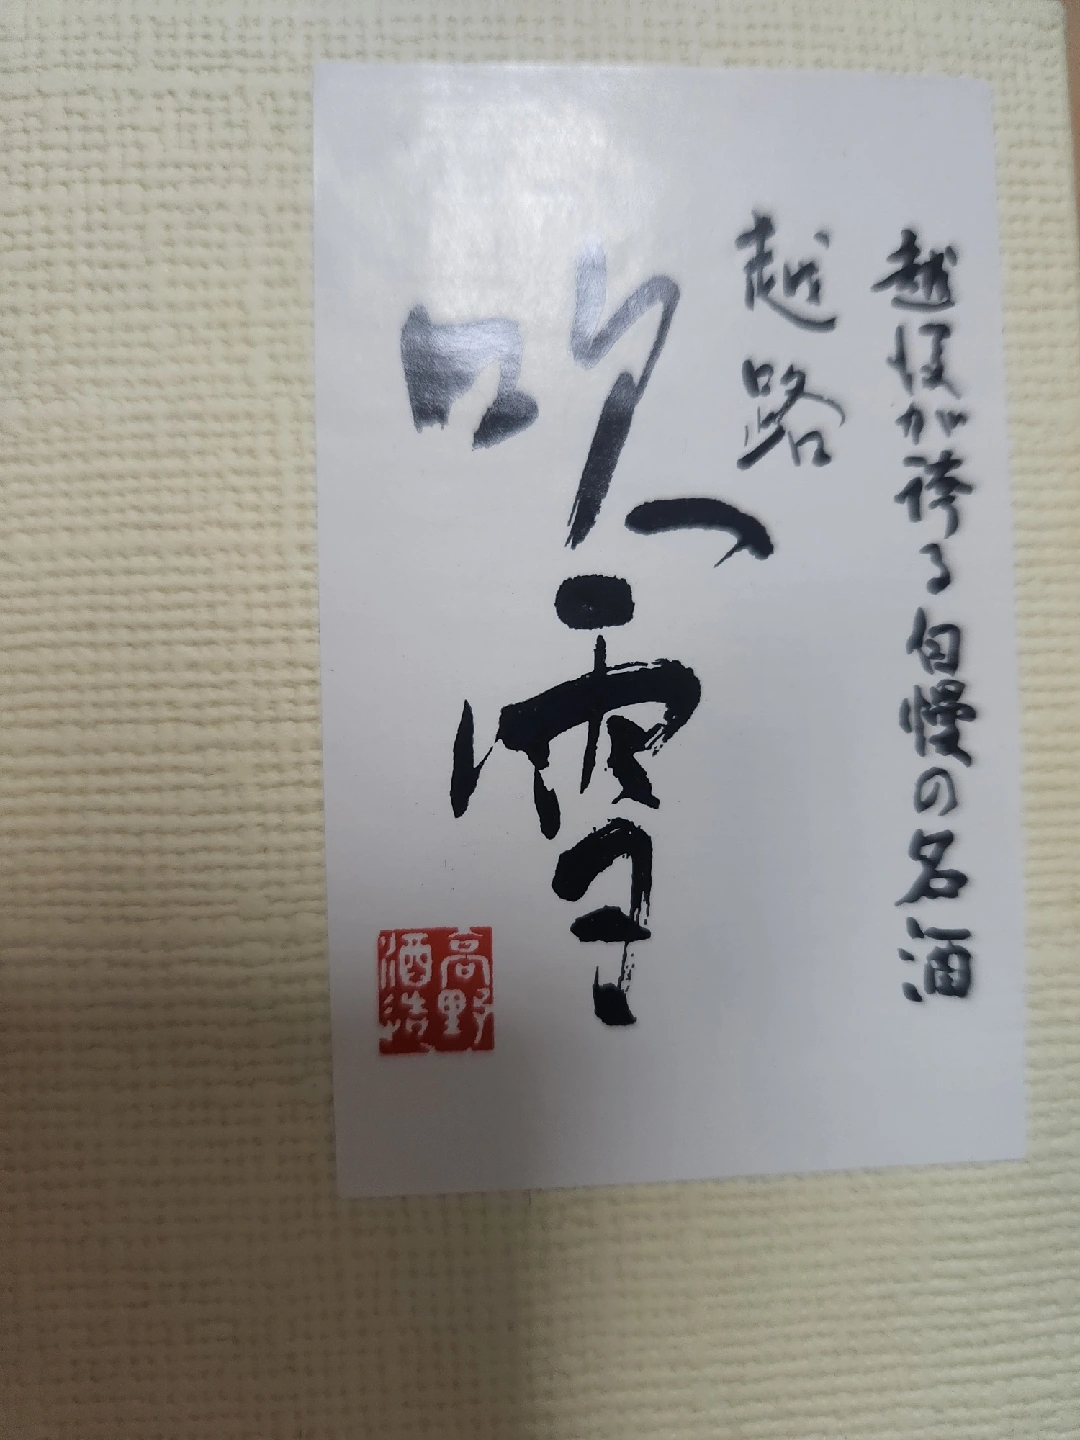 越後が誇る自慢の名酒
越路
吹雪
高野
酒造